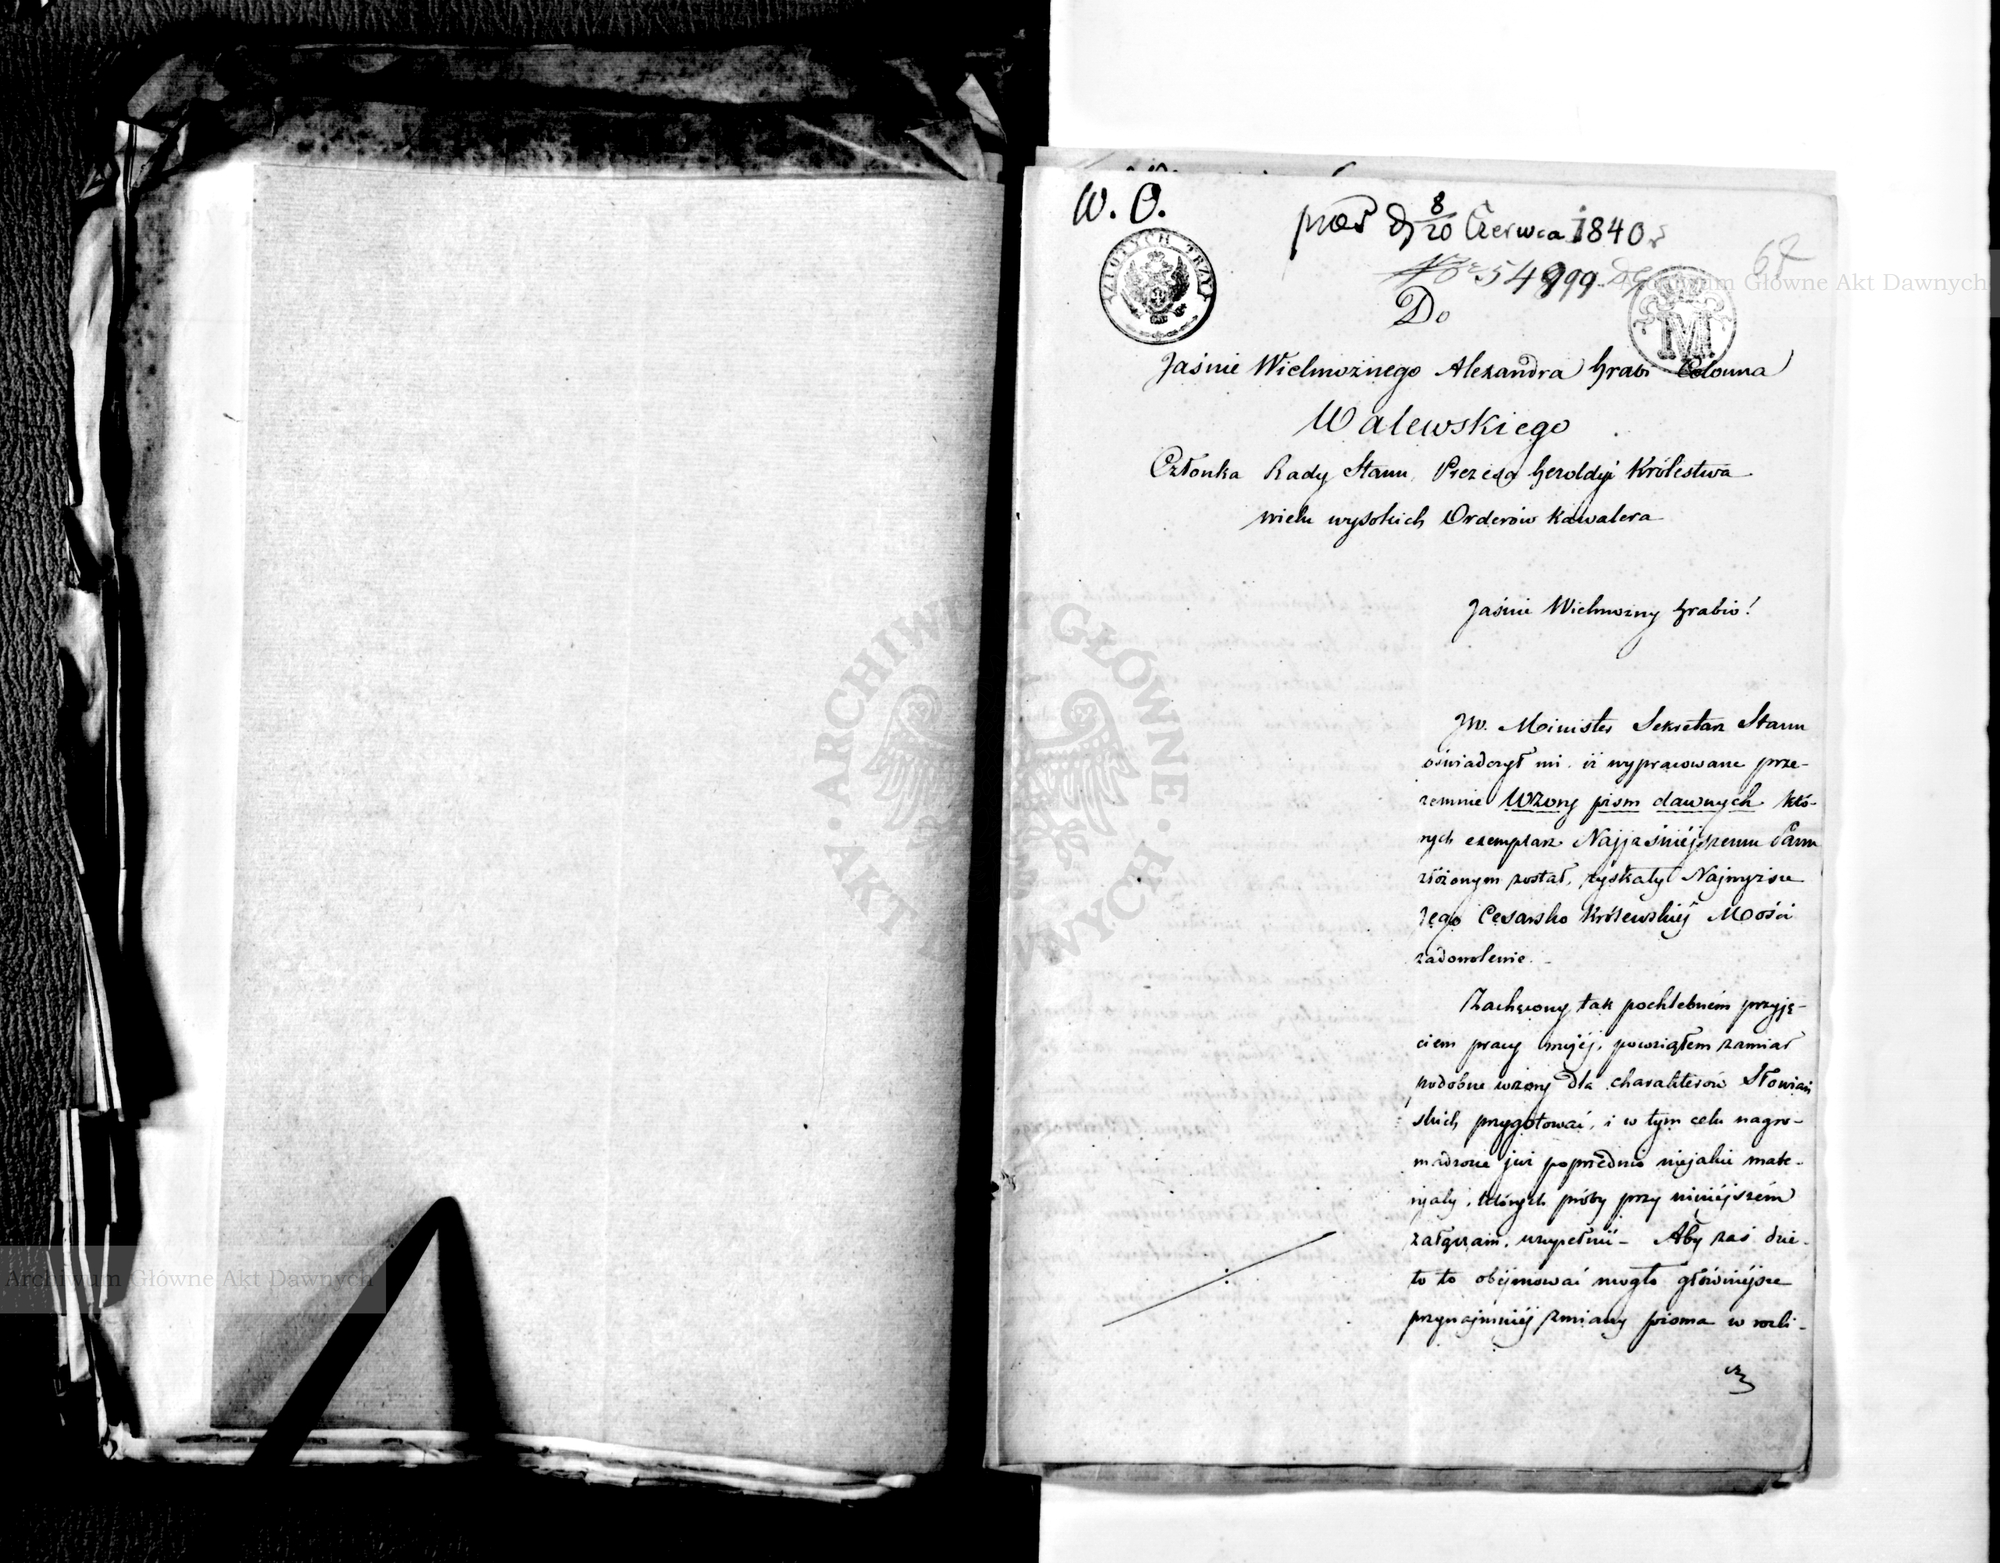 W. O.
pres d 8/20 Czerwca 1840 r
64
ZŁOTYCH TRZY
No 54899
M
Do
Jaśnie Wielmożnego Alexandra Hrabi Colonna
Walewskiego
Członka Rady Stanu, Prezesa Heroldyi Królestwa
wielu wysokich Orderów Kawalera
Jaśnie Wielmożny Hrabio!
JW. Minister Sekretarz Stanu
oświadczył mi, iż wypracowane prze-
zemnie Wzory pism dawnych któ-
rych exemplarz Najjaśniéjszemu Panu
złożonym został, zyskały Najwyższe
Jego Cesarsko Królewskiéj Mości
zadowolenie.
Zachęcony tak pochlebném przyję-
ciem pracy mojéj, powziąłem zamiar
podobne wzory dla charakterów Słowiań
skich przygotować, i w tym celu nagro-
madzone już poprzednio niejakie mate-
ryały, których próby przy niniéjszém
załączam, uzupełnić - Aby zaś dzie-
ło to obejmować mogło główniéjsze
przynajmniéj zmiany pisma w rozli-
Archiwum Główne Akt Dawnych
ARCHIWUM GŁÓWNE AKT DAWNYCH
Archiwum Główne Akt Dawnych